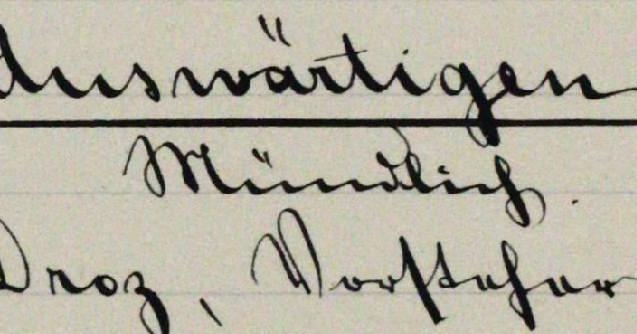 Auswärtigen
Mündlich.
Droz, Vorsteher